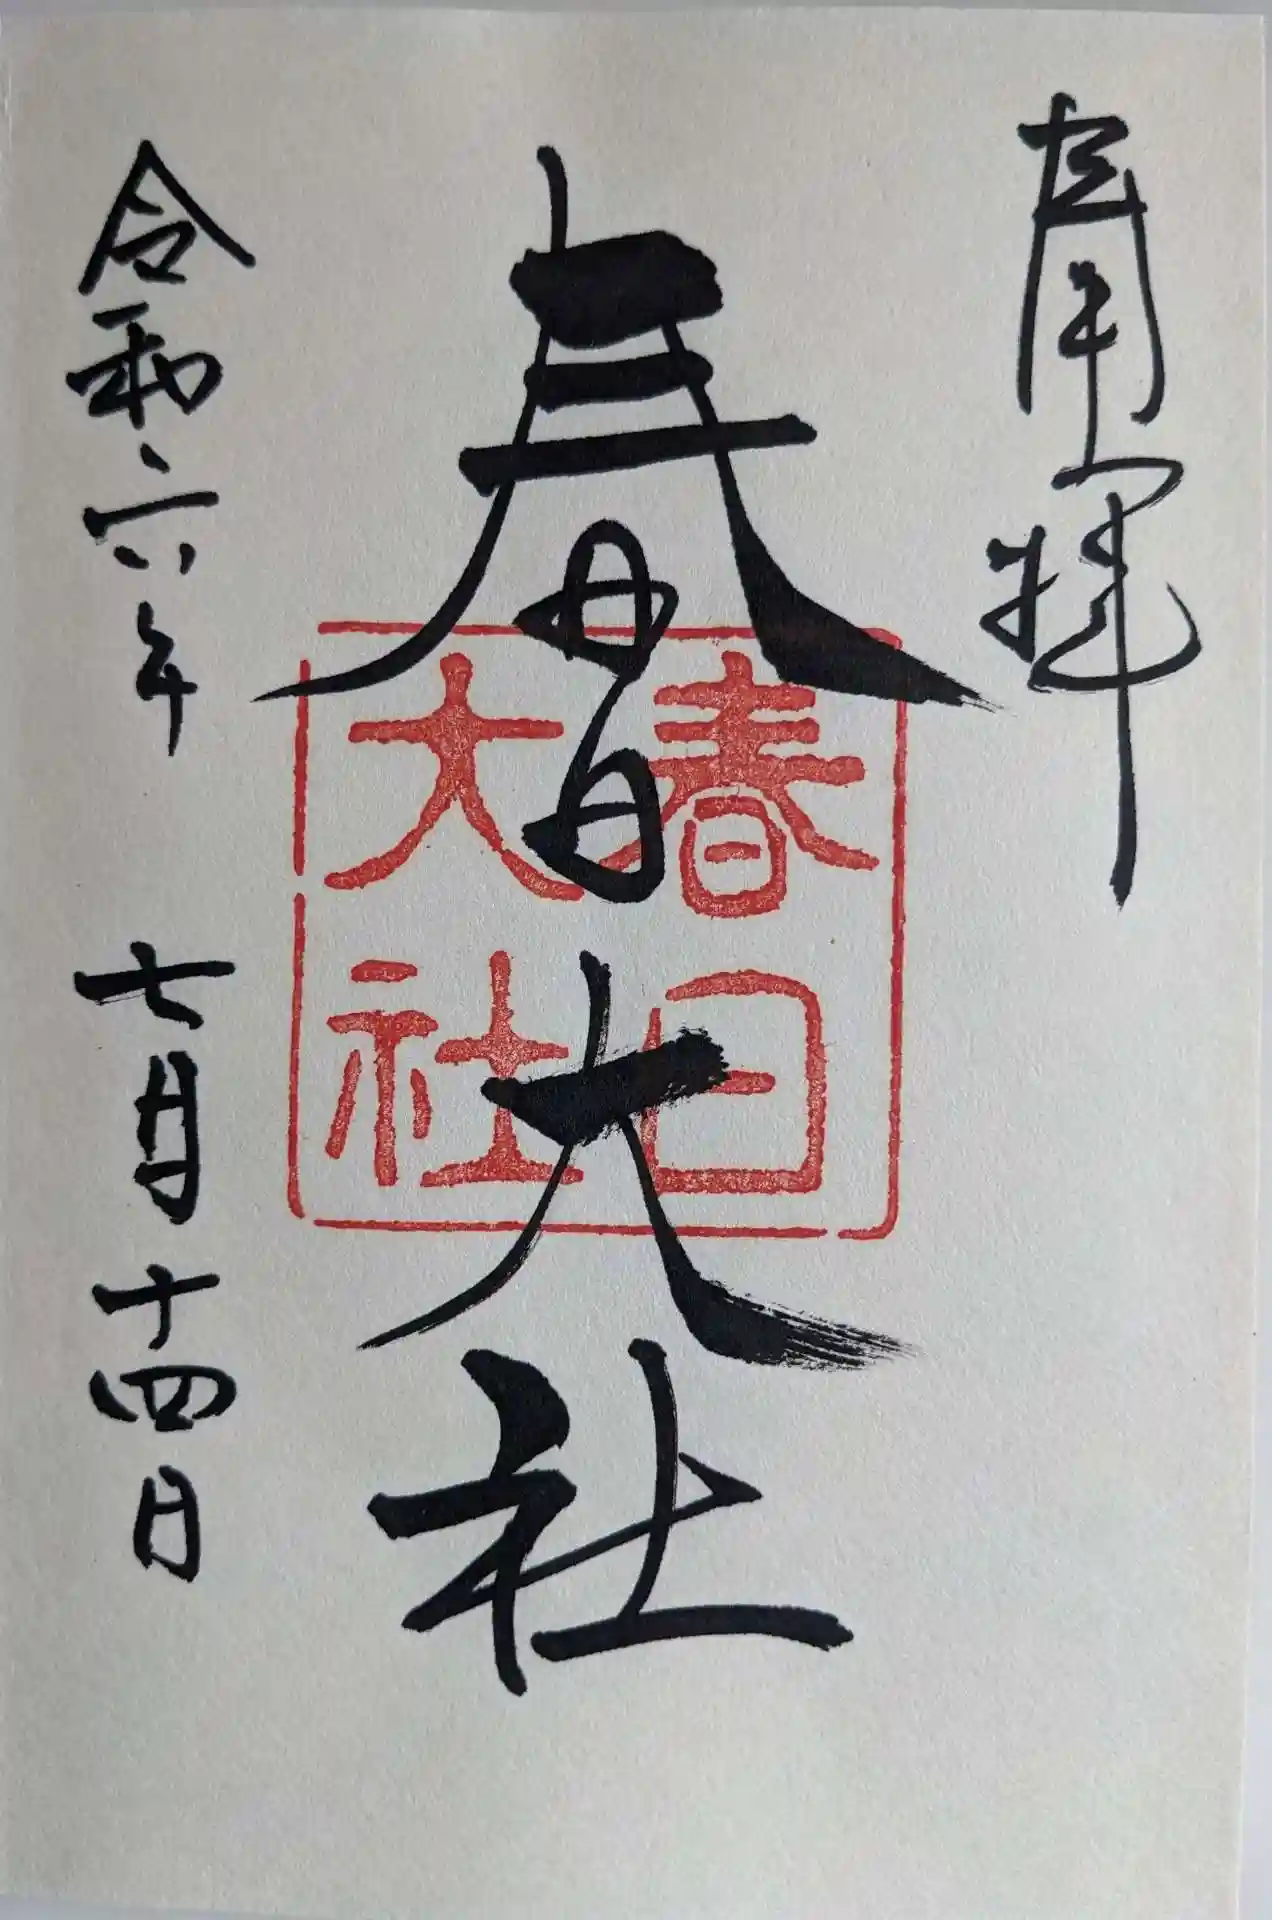 奉拝
春日大社
春日
大社
令和六年 七月十四日